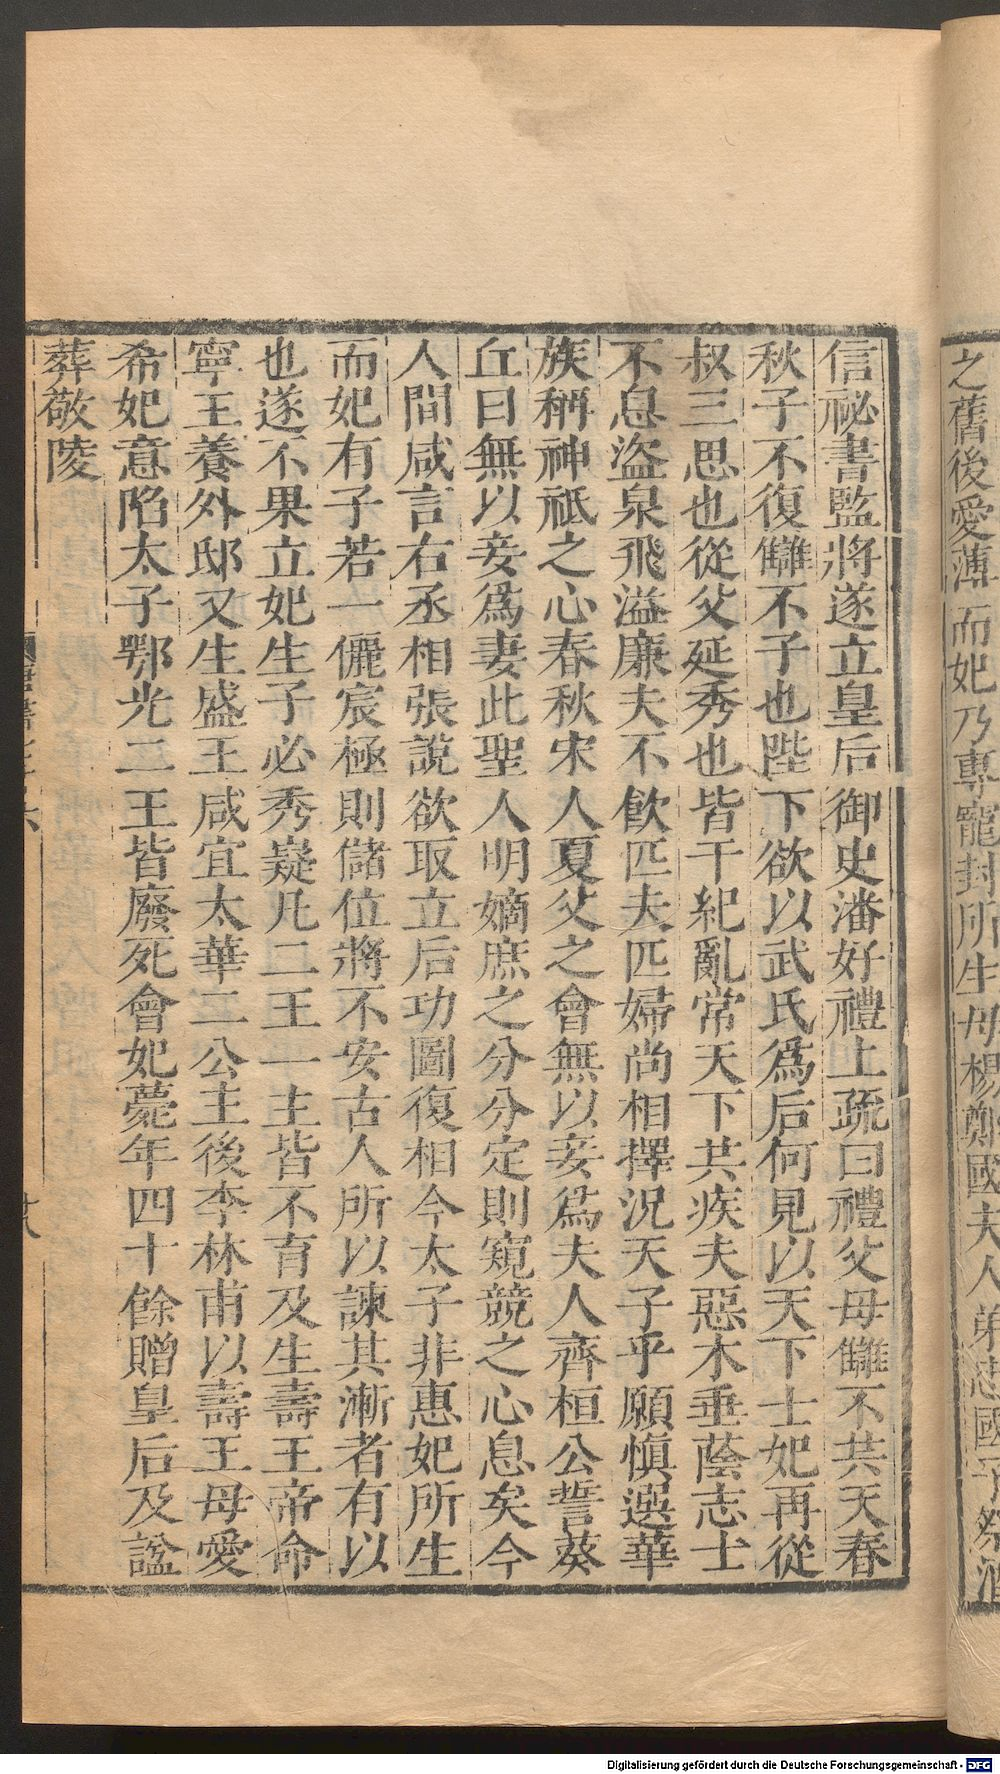 之舊後愛薄而妃乃專寵封所生母楊鄭國夫人弟忠國子祭酒
信祕書監將遂立皇后御史潘好禮上疏曰禮父母讎不共天春
秋子不復讎不子也陛下欲以武氏爲后何見以天下士妃再從
叔三思也從父延秀也皆干紀亂常天下共疾夫惡木垂蔭志士
不息盜泉飛溢廉夫不飮匹夫匹婦尚相擇況天子乎願愼選華
族稱神祇之心春秋宋人夏父之會無以妾爲夫人齊桓公誓葵
丘曰無以妾爲妻此聖人明嫡庶之分分定則窺競之心息矣今
人間咸言右丞相張說欲取立后功圖復相今太子非惠妃所生
而妃有子若一儷宸極則儲位將不安古人所以諫其漸者有以
也遂不果立妃生子必秀嶷凡二王一主皆不育及生壽王帝命
寧王養外邸又生盛王咸宜太華二公主後李林甫以壽王母愛
希妃意陷太子鄂光二王皆廢死會妃薨年四十餘贈皇后及諡
葬敬陵
廿八
Digitalisierung gefördert durch die Deutsche Forschungsgemeinschaft - DFG